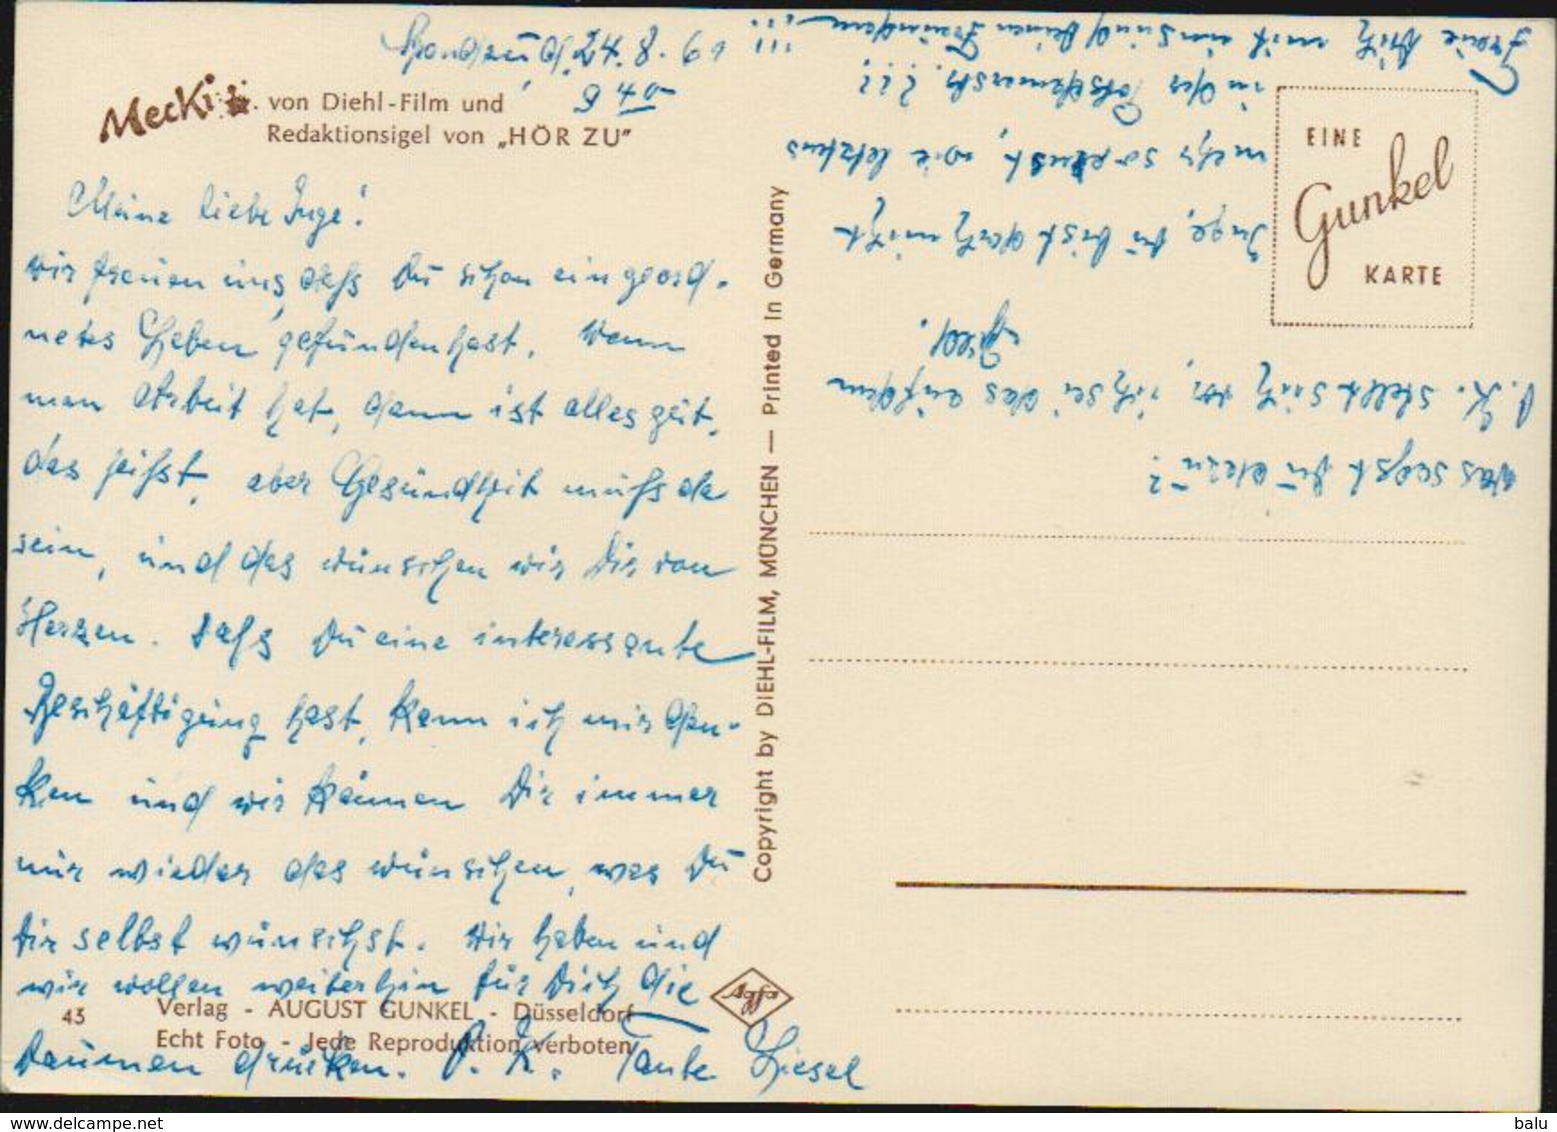 24. 8. 61
Mecki . von Diehl-Film und
Redaktionsigel von „HÖR ZU"
Meine liebe Inge!
wir freuen uns, dass Du schon ein geord-
netes Leben gefunden hast. Wenn
man Arbeit hat, dann ist alles gut,
das heisst, aber Gesundheit muss da
sein, und das wünschen wir Dir von
Herzen. Dass Du eine interessante
Beschäftigung hast, kann ich mir den-
ken und wir können Dir immer
nur wieder das wünschen, was Du
Dir selbst wünschst. Wir haben und
wir wollen weiterhin für Dich die
Daumen drücken. O. K. Tante Liesel
43
Verlag - AUGUST GUNKEL - Düsseldorf
Echt Foto - Jede Reproduktion verboten
Agfa
Copyright by DIEHL-FILM, MÜNCHEN — Printed in Germany
EINE
Gunkel
KARTE
Was sagst Du dazu?
O. K. stellt sich vor, ich sei das auf dem
Bild.
Inge, Du bist doch nicht
mehr so ernst, wie letztens
in der ???
Freue Dich mit uns und Deinen Freunden !!!